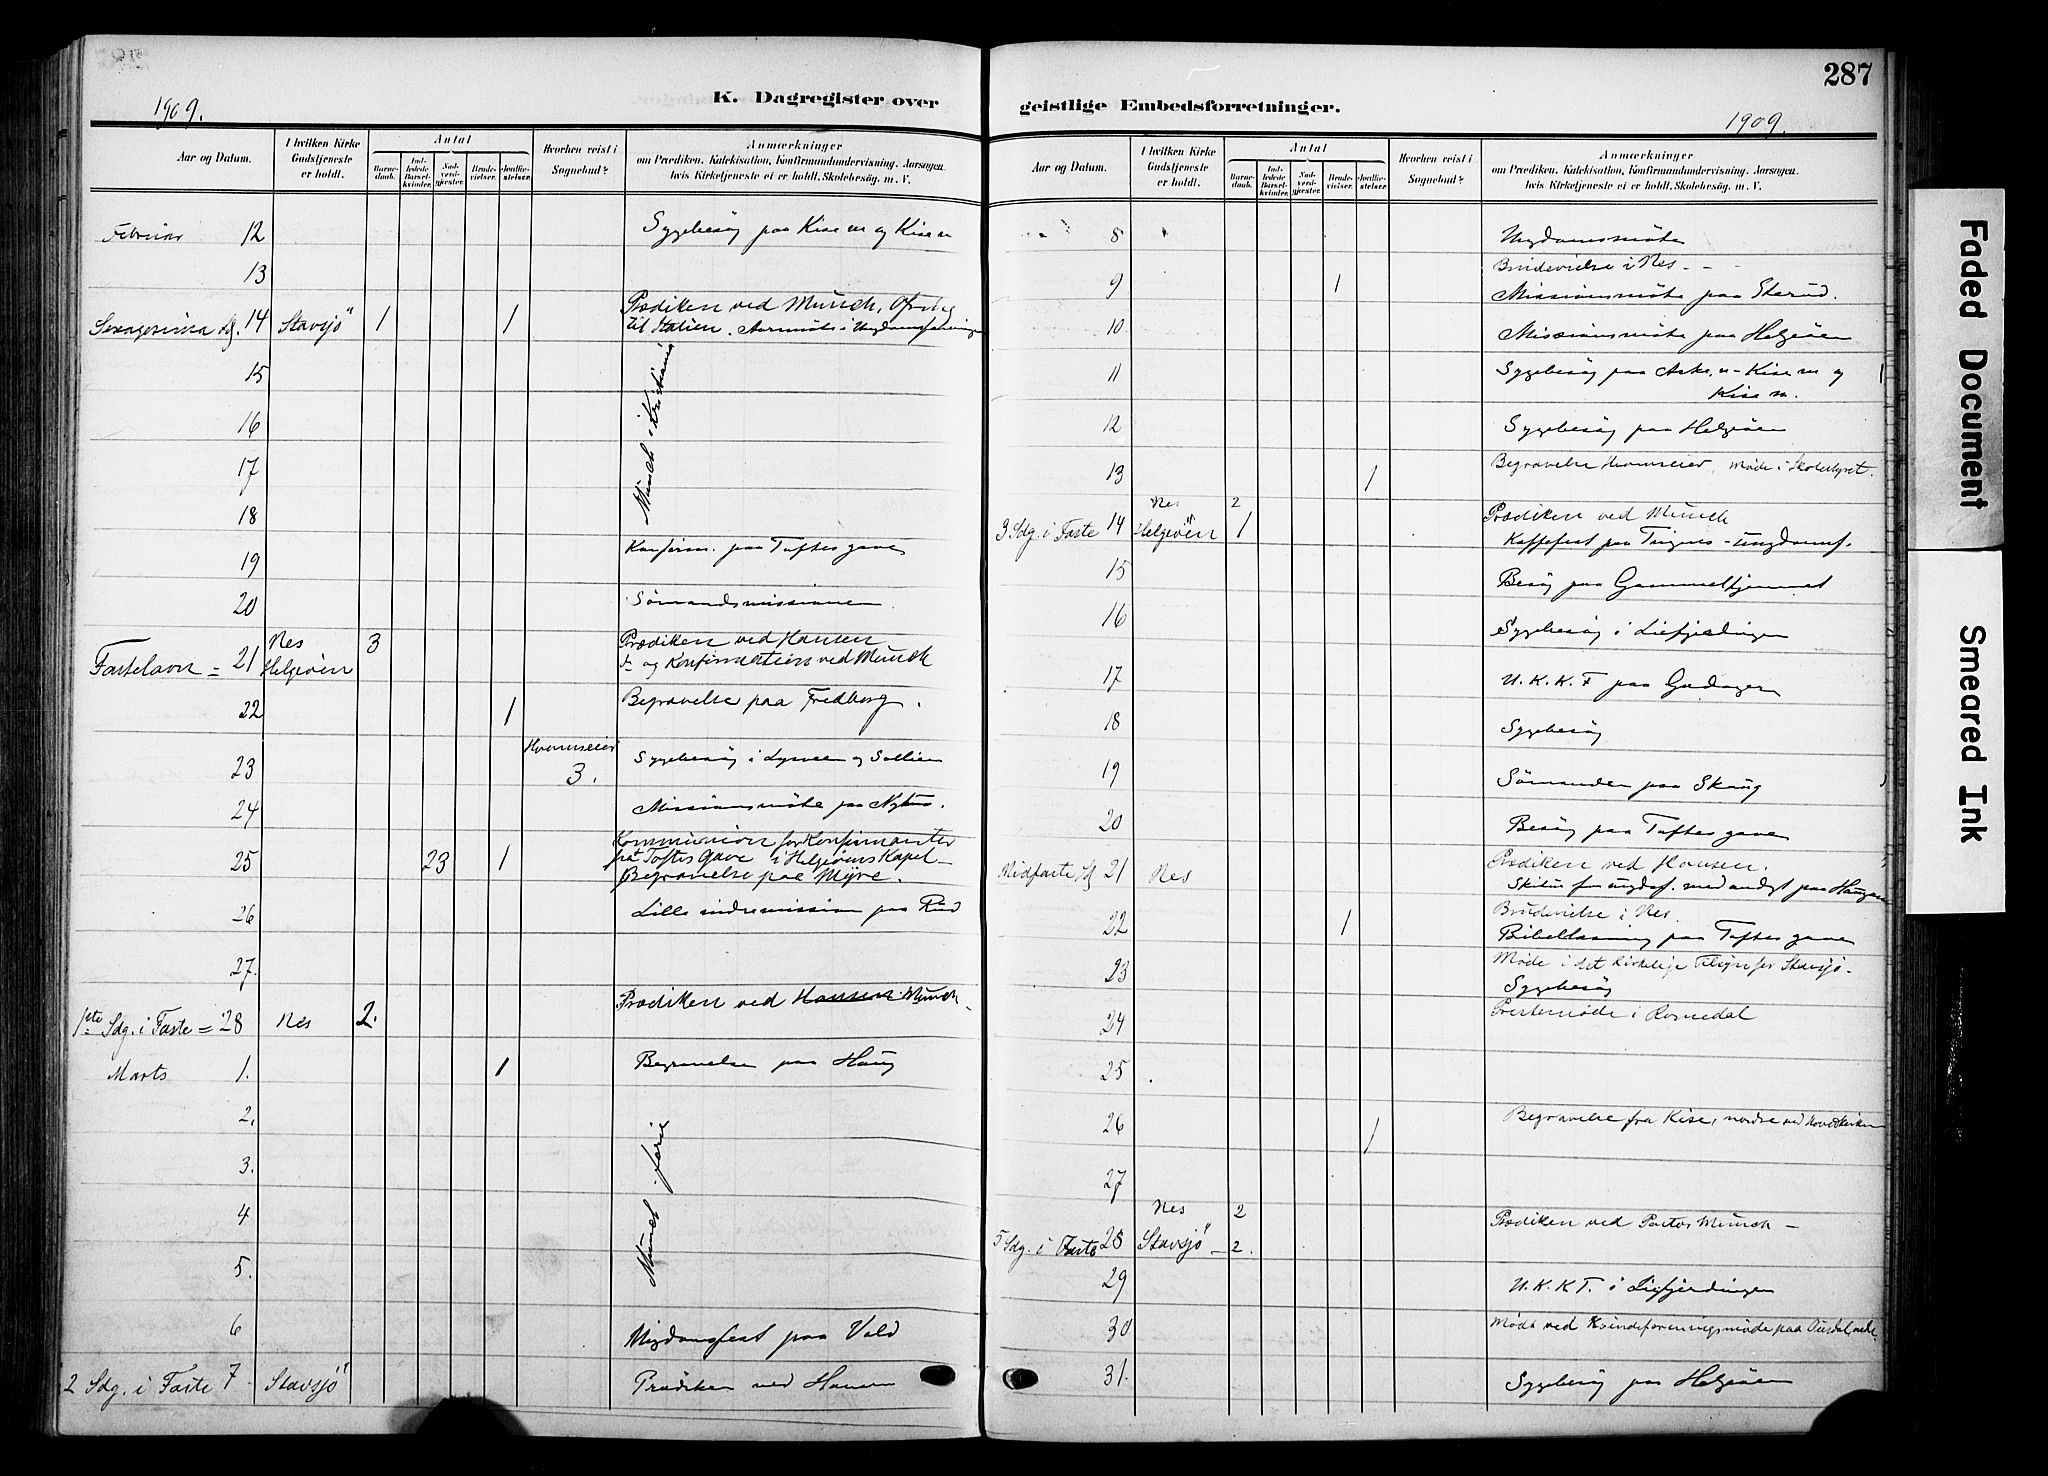 287
K. Dagregister over geistlige Embedsforretninger.
1909.
1909.
Aar og Datum.
I hvilken Kirke Gudstjeneste er holdt.
Antal
Barnedaab.
Indledede Barselkvinder.
Nadverdgjester.
Brudevielser.
Jordfæstelser.
Hvorhen reist i Sognebud?
Anmærkninger
om Prædiken, Katekisation, Konfirmandundervisning, Aarsagen,
hvis Kirketjeneste ei er holdt, Skolebesøg m. V.
Februar 12 Sygebesøg paa Kise m og Kise n
13
Sexagesima sdg. 14 Stavsjö 1 1 Prædiken ved Munch,
til Italien. Aarsmöte i
15
16
17
Munch i Kristiania
18
19 Konfirm. paa Toftes gave
20 Sömandsmissionen
Fastelavn = 21 Nes 3 Prædiken ved Hansen
Helgeöen do og Konfirmation ved Munch
22 1 Begravelse paa Fredborg.
23 3. Sygebesøg i Lysveen og Sollien
24 Missionsmöte paa
25 23 1 Kommunion for Konfirmanter
fra Toftes Gave i Helgeöens Kapel -
Begravelse paa Myre.
26 Lille indremission paa Rud
27.
1ste Sdg. i Faste = 28 Nes 2. Prædiken ved Hansen Munch
Marts 1. 1 Begravelse paa Haug
2.
3.
4
Munch ferie
5.
6 paa Vold
2 Sdg. i Faste 7 Stavsjö Prædiken ved Hansen
Aar og Datum.
I hvilken Kirke Gudstjeneste er holdt.
Antal
Barnedaab.
Indledede Barselkvinder.
Nadverdgjester.
Brudevielser.
Jordfæstelser.
Hvorhen reist i Sognebud?
Anmærkninger
om Prædiken, Katekisation, Konfirmandundervisning, Aarsagen,
hvis Kirketjeneste ei er holdt, Skolebesøg m. V.
8 Ungdomsmöte
9 1 Brudevielse i Nes -
Missionsmöte paa Sterud.
10 Missionsmöte paa Helgeöen
11 Sygebesøg paa Kise m og
Kise n.
12 Sygebesøg paa Helgeöen
13 1 Begravelse Møde i Skolestyret.
3 Sdg. i Faste 14 Nes 2
Helgeöen 1 Prædiken ved Munch
Kaffefest paa
15 Besøg paa Gammelhjemmet
16 Sygebesøg i Liefjerdingen
17 U.K.K.F paa
18 Sygebesøg
19 Sömanden paa Skaug
20 Besøg paa Toftes gave
Midfaste sdg 21 Nes Prædiken ved Hansen.
22 1 Brudevielse i Nes.
Bibellæsning paa Toftes gave
23 Møde i det kirkelige Tilsyn for Stavsjø.
Sygebesøg
24 Prestemøde i Romedal
25
26 1 Begravelse fra Kise, nordre ved Hovedkirken
27
5 Sdg. i Faste 28 Nes 2
Stavsjö - 2. Prædiken ved Pastor Munch -
29 U.K.K.F. i Liefjerdingen
30 Møde ved Kvindeforeningsmøde paa
31. Sygebesøg paa Helgeöen
Faded Document
Smeared Ink